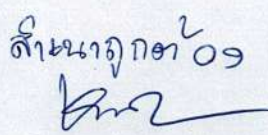 สำเนาถูกต้อง